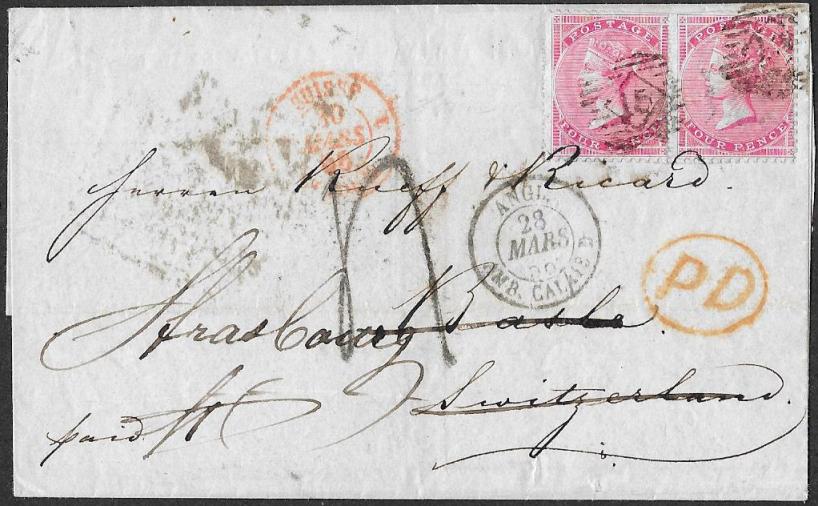 POSTAGE
FOUR PENCE
POSTAGE
FOUR PENCE
SUISSE
MARS
Herren Rueff & Ricard.
ANGL.
28
MARS
AMB. CALAIS D
PD
Strasbourg Basle.
paid Switzerland.